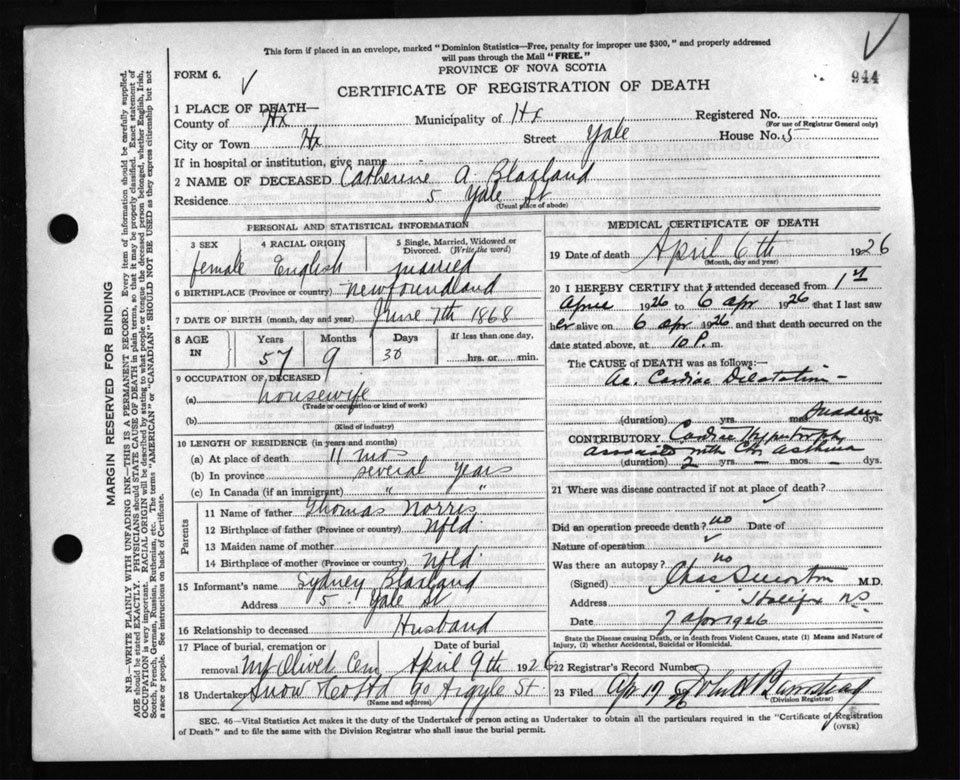 This form if placed in an envelope, marked "Dominion Statistics—Free, penalty for improper use $300," and properly addressed
will pass through the Mail "FREE."
FORM 6.
PROVINCE OF NOVA SCOTIA
944
CERTIFICATE OF REGISTRATION OF DEATH
1 PLACE OF DEATH—
County of Hx Municipality of Hx Registered No.
(For use of Registrar General only)
City or Town Hx Street Yale House No. 5
If in hospital or institution, give name
2 NAME OF DECEASED Catherine A Blaxland
Residence 5 Yale St
(Usual place of abode)
PERSONAL AND STATISTICAL INFORMATION
3 SEX 4 RACIAL ORIGIN 5 Single, Married, Widowed or
Divorced. (Write the word)
female English married
6 BIRTHPLACE (Province or country) Newfoundland
7 DATE OF BIRTH (month, day and year) June 7th 1868
8 AGE IN Years Months Days If less than one day,
57 9 30 hrs. or min.
9 OCCUPATION OF DECEASED
(a) housewife
(Trade or occupation or kind of work)
(b)
(Kind of industry)
10 LENGTH OF RESIDENCE (in years and months)
(a) At place of death 11 mos
(b) In province several years
(c) In Canada (if an immigrant) " "
Parents
11 Name of father Thomas Norris
12 Birthplace of father (Province or country) Nfld.
13 Maiden name of mother
14 Birthplace of mother (Province or country) Nfld.
15 Informant's name Sydney Blaxland
Address 5 Yale St
16 Relationship to deceased Husband
17 Place of burial, cremation or Date of burial
removal Mt Olivet Cem April 9th 1926
18 Undertaker Snow & Co Ltd 90 Argyle St.
(Name and address)
MEDICAL CERTIFICATE OF DEATH
19 Date of death April 6th 1926
(Month, day and year)
20 I HEREBY CERTIFY that I attended deceased from 1st
April 1926 to 6 apr 1926 that I last saw
her alive on 6 apr 1926 and that death occurred on the
date stated above, at 10 P. m.
The CAUSE of DEATH was as follows:
Ac. Cardiac Dilatation —
(duration) yrs. mos. Sudden dys.
CONTRIBUTORY Cardiac Hypertrophy
associated with Chr Asthma
(duration) 2 yrs. — mos. — dys.
21 Where was disease contracted if not at place of death?
Did an operation precede death? no Date of
Nature of operation
Was there an autopsy? no
(Signed) M.D.
Address Halifax NS
Date 7 apr 1926
State the Disease causing Death, or in death from Violent Causes, state (1) Means and Nature of
Injury, (2) whether Accidental, Suicidal or Homicidal.
22 Registrar's Record Number
23 Filed Apr 17 1926
(Division Registrar)
SEC. 46—Vital Statistics Act makes it the duty of the Undertaker or person acting as Undertaker to obtain all the particulars required in the "Certificate of Registration
of Death" and to file the same with the Division Registrar who shall issue the burial permit.
(OVER)
MARGIN RESERVED FOR BINDING
N.B.—WRITE PLAINLY WITH UNFADING INK—THIS IS A PERMANENT RECORD. Every item of information should be carefully supplied.
AGE should be stated EXACTLY. PHYSICIANS should STATE CAUSE OF DEATH in plain terms, so that it may be properly classified. Exact statement of
OCCUPATION is very important. RACIAL ORIGIN will be described by stating to what people or tongue the deceased person belonged, whether English, Irish,
Scotch, French, German, Russian, Ruthenian, etc. The terms "AMERICAN" or "CANADIAN" SHOULD NOT BE USED as they express citizenship but not
a race or people. See instructions on back of Certificate.